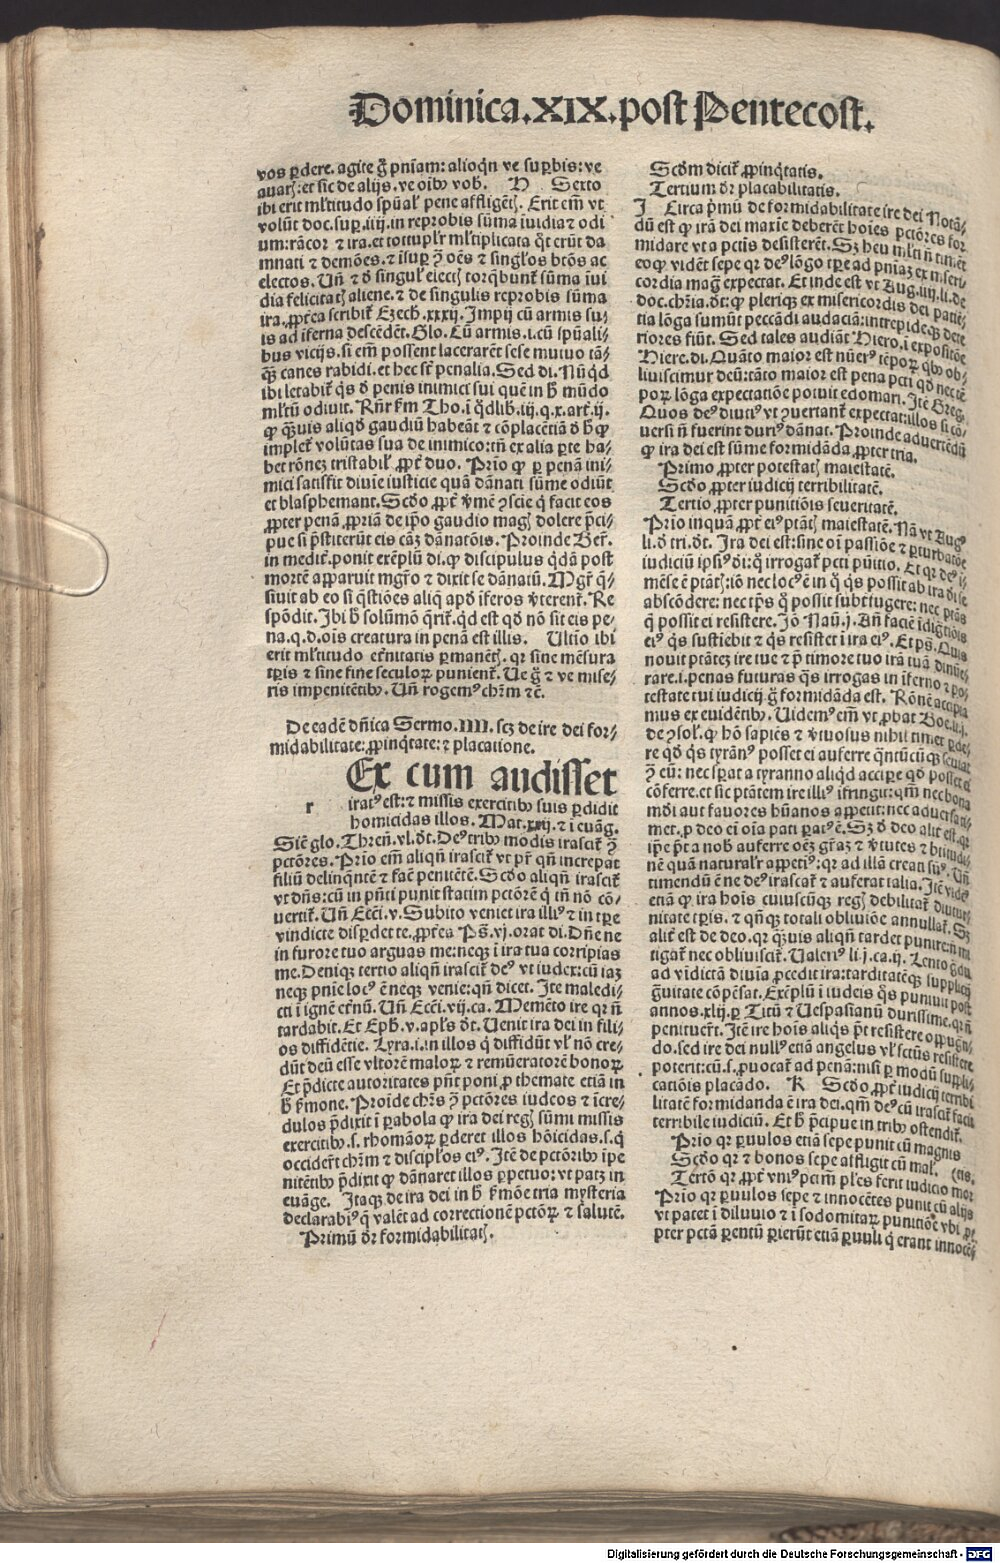 Dominica.XIX.post Pentecost.
vos ꝑdere. agite g̃ pnĩam: alioqñ ve suꝑbis: ve
auarꝭ: et sic de alijs. ve oĩbꝰ vob̃. H Sexto
ibi erit mľtitudo spũaľ pene affligẽtꝭ. Erit em̃ vt
volũt doc. suꝑ .iiij. in reprobis sũma ĩuidia ⁊ odi
um: rãcor ⁊ ira. et totupľr mľtiplicata q̃t erũt da
mnati ⁊ demões. ⁊ ĩsuꝑ ꝯ̃ oẽs ⁊ singľos btõs ac
electos. Uñ ⁊ ð singuľ eiectꝭ torq̃bunt̃ sũma ĩui
dia felicitatꝭ aliene. ⁊ de singulis reprobis sũma
ira. ꝓpt̃ea scribit̃ Ezech̃ .xxxij. Impij cũ armis su⸗
is ad ĩferna descẽdẽt. Glo. Cũ armis .i. cũ spũali⸗
bus vicijs. si em̃ possent lacerarẽt sese mutuo tã⸗
q̃ꝫ canes rabidi. et hec sť penalia. Sed di. Nũqd
ibi letabit̃ q̃s ð penis inimici sui quẽ in h̃ mũdo
mľtũ odiuit. Rñr fm̃ Tho. ĩ q̃dlib̃. iij. q. x. art̃. ij.
ꝙ q̃ꝫuis aliqð gaudiũ habeãt ⁊ cõplacẽtiã ð h̃ ꝙ
implet̃ volũtas sua de inimico: tñ ex alia ꝑte ha⸗
bet rõneꝫ tristabiľ ꝓpt̃ duo. Prio ꝙ ꝑ penã ini⸗
mici satisfit diuĩe iusticie quã dãnati sũme odiũt
et blasphemant. Scðo ꝓpt̃ v̾mẽ ꝯscie q̃ facit eos
ꝓpter penã ꝓpriã de ip̃o gaudio magꝭ dolere p̃ci⸗
pue si p̃stiterũt eis cãꝫ dãnatõis. Proinde Ber̃.
in medit̃. ponit exẽplũ di. ꝙ discipulus q̃dã post
mortẽ apparuit mgr̃o ⁊ dixit se dãnatũ. Mgr̃ q̃⸗
siuit ab eo si q̃stiões aliq̃ apð ĩferos v̾terent̃. Re
spõdit. Ibi h̃ solũmõ q̃rit̃. qð est qð nõ sit eis pe⸗
na. q. d. oĩs creatura in penã est illis. Ultĩo ibi
erit mľtitudo et̃nitatis ꝑmanẽtꝭ. qꝛ sine mẽsura
tꝑis ⁊ sine fine seculoꝝ punient̃. Ue g̃ ⁊ ve mise⸗
ris impenitẽtibꝰ. Uñ rogemꝰ chr̃m ⁊ẽ.
De eadẽ dñica Sermo .IIII. scꝫ de ire dei for⸗
midabilitate: ꝓpinq̃tate: ⁊ placatione.
Ex cum audisset
r iratꝰ est: ⁊ missis exercitibꝰ suis ꝑdidit
homicidas illos. Mat. xxij. ⁊ ĩ euãg.
Sic̃ glo. Thren̄. vl. õt. Deꝰ tribꝰ modis irascit̃ ꝯ̃
pctõres. Prio em̃ aliqñ irascit̃ vt pr̃ qñ increpat
filiũ delinquẽtẽ ⁊ facẽ penitẽtẽ. Scðo aliqñ irascit̃
vt dñs: cũ in pñti punit statim pctorẽ q̃ tñ nõ cõ⸗
uertit̃. Uñ Ecci̾. v. Subito veniet ira illiꝰ ⁊ in tꝑe
vindicte disꝑdet te. ꝓpt̃ea Ps̃. vj. orat di. Dñe ne
in furore tuo arguas me: neqꝫ ĩ ira tua corripias
me. Deniqꝫ tertio aliqñ irascit̃ deꝰ vt iudex: cũ iaꝫ
neqꝫ pnĩe locꝰ ẽ neqꝫ venie: qñ dicet. Ite maledi⸗
cti ĩ ignẽ et̃nũ. Uñ Ecci̾. vij. ca. Memẽto ire qꝛ ñ
tardabit. Et Eph̃. v. apľs õt. Uenit ira dei in fili⸗
os diffidẽtie. Lyra .i. in illos q̃ diffidũt vľ nõ cre⸗
dũt deũ esse vltorẽ maloꝝ ⁊ remũeratorẽ bonoꝝ
Et p̃dicte autoritates pñt poni ꝓ themate etiã in
h̃ ẛmone. Proĩde chr̃s ꝯ̃ pctõres iudeos ⁊ ĩcre⸗
dulos p̃dixit ĩ ꝑabola ꝙ ira dei regꝭ sũmi missis
exercitibꝰ .s. rhomãoꝝ ꝑderet illos hõicidas .s. q̃
occidert̃ chr̃m ⁊ discipľos eiꝰ. Itẽ de pctõribꝰ ĩpe
nitẽtibꝰ p̃dixit ꝙ dãnaret illos ꝑpetuo: vt patꝫ in
euãge. Itaqꝫ de ira dei in h̃ ẛmõe tria mysteria
declarabiꝰ q̃ valẽt ad correctionẽ pctõꝝ ⁊ salutẽ.
Primũ ðr formidabilitatꝭ.
Scðm dicit̃ ꝓpinq̃tatis.
Tertium ðr placabilitatis.
I Circa p̃mũ de formidabilitate ire dei Notã⸗
dũ est ꝙ irã dei maxĩe deberẽt hoĩes pctõres for
midare vt a pctĩs desisterẽt. Sꝫ heu mľti ñ timẽt
eo ꝙ vidẽt sepe qꝛ deꝰ lõgo tꝑe ad pnĩaꝫ ex miseri
cordia mag̃ expectat. Et inde est vt Aug. iiij. li. de
doc. chr̃ia. õt: ꝙ pleriqꝫ ex misericordis dei patiẽ⸗
tia lõga sumũt peccãdi audaciã: intrepideqꝫ dete
riores fiũt. Sed tales audiãt Hiero. ĩ expositõe
Hiere. di. Quãto maior est nũerꝰ tẽpoꝝ qbꝰ ob⸗
liuiscimur deũ: tãto maior est pena pcti qð nec tẽ
poꝝ lõga expectatiõe potuit edomari. Itẽ Greg.
Quos deꝰ diutiꝰ vt ꝯuertant̃ expectat: illos si cõ⸗
uersi ñ fuerint duriꝰ dãnat. Proinde aduertedũ
ꝙ ira dei est sũme formidãda ꝓpter tria.
Primo ꝓpter potestatꝭ maiestatẽ.
Scðo ꝓpter iudicij terribilitatẽ.
Tertio ꝓpter punitiõis seueritatẽ.
Prio inquã ꝓpt̃ eiꝰ ptãtꝭ maiestatẽ. Nã vt Augꝰ
li. ð tri. õt. Ira dei est: sine oĩ passiõe ⁊ ꝑturbatõe
iudiciũ ipsiꝰ ðĩ: q̃ irrogat̃ pcti pũitio. Et qꝛ deꝰ ĩ⸗
mẽse ẽ ptãtꝭ: iõ nec locꝰ ẽ in q̃ q̃s possit ab ira dĩ se
abscõdere: nec tp̃s q̃ possit subt̾fugere: nec ptãs
q̃ possit ei resistere. Iõ Naũ. j. An̄ faciẽ ĩdig̃tiõis
eiꝰ q̃s sustiebit ⁊ q̃s resistet ĩ ira eiꝰ. Et ps̃. Quis
nouit ptãteꝫ ire tue ⁊ p̃ timore tuo irã tuã dinũe⸗
rare .i. penas futuras q̃s irrogas in ĩferno ⁊ po⸗
testate tui iudicij g̃ formidãda est. Rõnẽ accipia
mus ex euidẽtibꝰ. Uidemꝰ em̃ vt ꝓbat Boe. li. j.
de ꝯsoľ. ꝙ hõ sapiẽs ⁊ v̾tuosus nihil timet ꝑde⸗
re qð q̃s tyrãnꝰ posset ei auferre q̃ntũcũqꝫ seuiat
ꝯ̃ eũ: nec sꝑat a tyranno aliqð accipe qð posset ei
cõferre. et sic ptãtem ire illiꝰ ĩfringit: qm̃ nec bona
mũdi aut fauores hũanos appetit: nec aduersati⸗
met. ꝓ deo ei oĩa pati paratꝰ ẽ. Sꝫ ð deo alit̃ est. qꝛ
ip̃e p̃t a nob̃ auferre oẽꝫ gr̃aꝫ ⁊ v̾tutes ⁊ btitudi⸗
nẽ quã naturalꝛ appetiꝰ: qꝛ ad illã creati sũꝰ. Uñ
timendũ ẽ ne deꝰ irascat̃ ⁊ auferat talia. Itẽ videꝰ
etiã ꝙ ira hoĩs cuiuscũqꝫ regꝭ debilitat̃ diutur⸗
nitate tꝑis. ⁊ qñqꝫ totali obliuiõe annullat̃. Sꝫ
alit̃ est de deo. qꝛ q̃ꝫuis aliqñ tardet punire: ñ mi
tigat̃ nec obliuiscit̃. Ualeriꝰ li. j. ca. ij. Lento g̃du
ad vĩdictã diuĩa ꝓcedit ira: tarditatẽqꝫ supplicij
g̃uitate cõpẽsat. Exẽplũ ĩ iudeis q̃s puniuit post
annos .xlij. ꝑ Titũ ⁊ Uespasianũ durissime. qꝛ ñ
penituert̃. Itẽ ire hoĩs aliq̃s p̃t resistere oppugnã⸗
do. sed ire dei nullꝰ etiã angelus vľ sctũs resistere
poterit: cũ .s. ꝓuocat̃ ad penã: nisi ꝑ modũ suppli⸗
catiõis placãdo. K Scðo ꝓpt̃ iudicij terribi
litatẽ formidanda ẽ ira dei. qm̃ deꝰ cũ irascit̃ facit
terribile iudiciũ. Et h̃ p̃cipue in tribꝰ ostendit̃.
Prio qꝛ ꝑuulos etiã sepe punit cũ magnis
Scðo qꝛ ⁊ bonos sepe affligit cũ mal̾. (tis.
Tertõ qꝛ ꝓpt̃ vniꝰ pctm̃ pľes ferit iudicio mor
Prio qꝛ ꝑuulos sepe ⁊ innocẽtes punit cũ alijs
vt patet ĩ diluuio ⁊ ĩ sodomitaꝝ punitiõe vbi ꝓ⸗
pter pctã ꝑentũ ꝑierũt etiã ꝑuuli q̃ erant innocẽ⸗
Digitalisierung gefördert durch die Deutsche Forschungsgemeinschaft - DFG